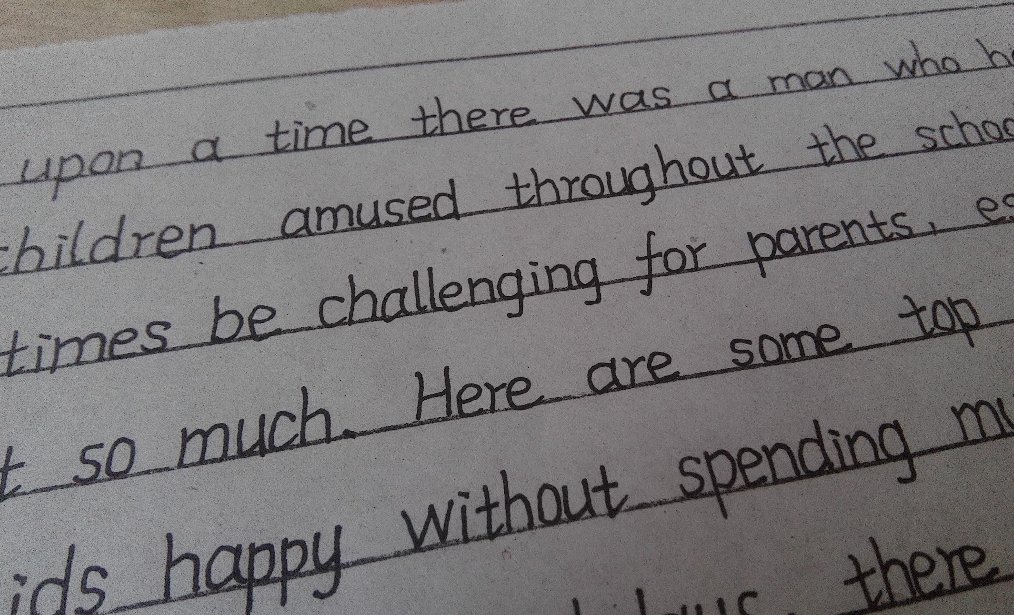 upon a time there was a man who
children amused throughout the
times be challenging for parents,
so much. Here are some top
happy without spending
there